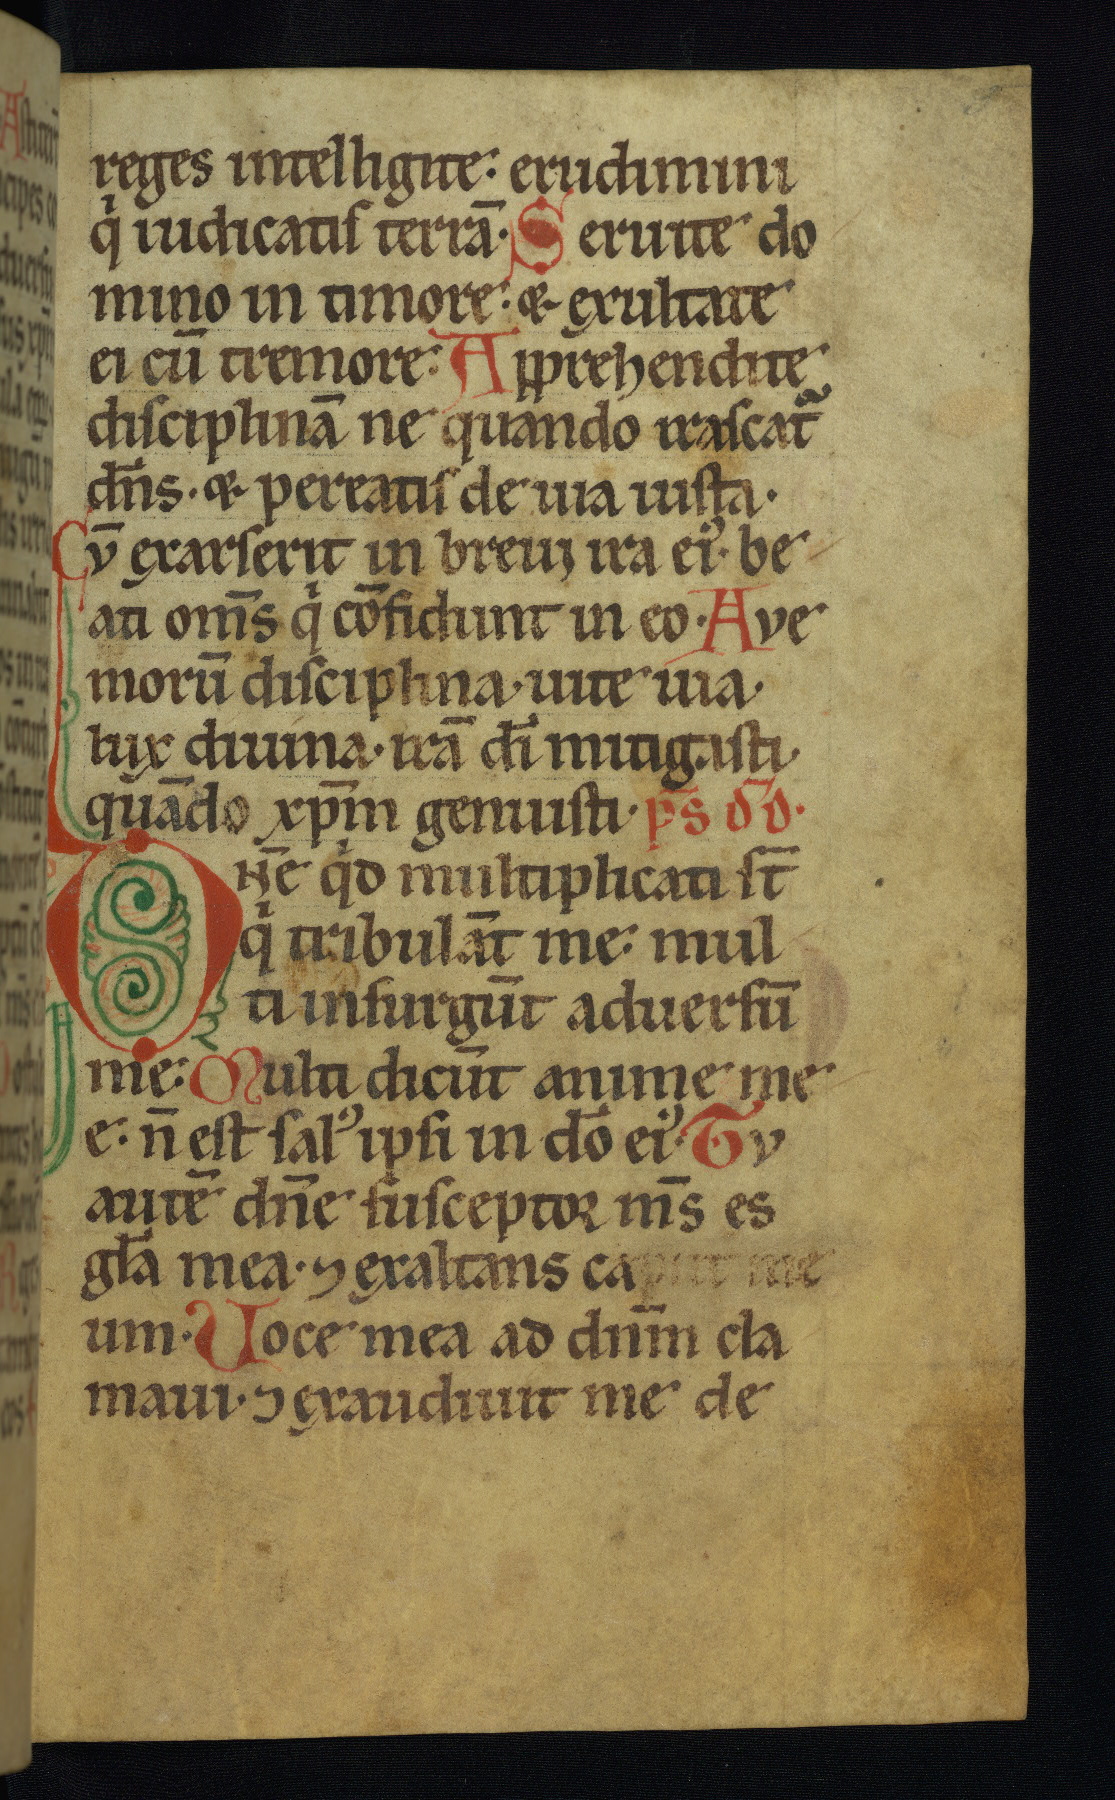 reges intelligite: erudimini
qͥ iudicatiſ terrā. Seruite do
mino in timore: & exultate
ei cū tremore: Apprehendite
diſciplinā ne quando iraſcat᷑
dn̄s. & pereatiſ de uia iuſta.
Cv̄ exarſerit in breui ira eiꝰ. be
ati om̄s qͥ cōfidunt in eo. Ave
morū diſciplina. uite uia.
lux diuina. irā dī mitigaſti.
quādo xp̄m genuiſti. pſ̄ dd̄.
Dn̄e qͥd multiplicati ſt̄
qͥ tribulāt me: mul
ti inſurgūt aduerſū
me: Multi dicūt anime me
e: n̄ eſt ſalꝰ ipſi in dō eiꝰ. Tv
autē dn̄e ſuſceptor m̄s es
gl̄a mea. ⁊ exaltans caput me
um. Uoce mea ad dn̄m cla
maui. ⁊ exaudiuit me de